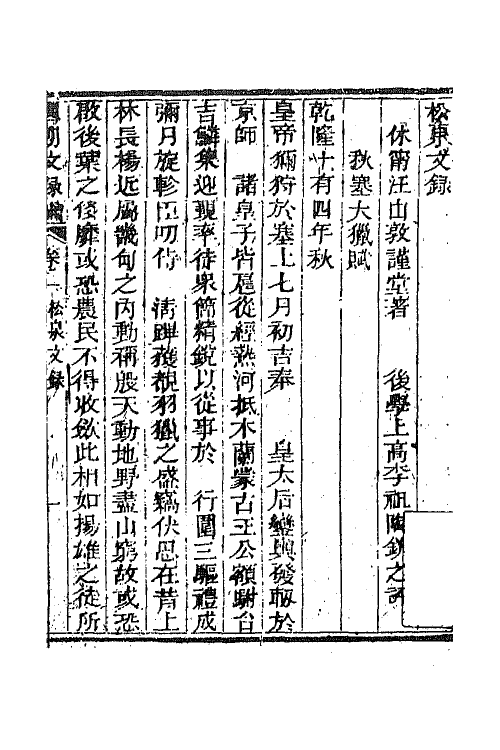 松泉文録
休甯汪由敦謹堂著　後學上高李祖陶欽之評
秋塞大獵賦
乾隆十有四年秋
皇帝獮狩於塞上七月初吉奉　皇太后鑾輿發軔於
京師　諸皇子皆扈從經熱河抵木蘭蒙古王公額駙台
吉鱗集迎覲率徒衆簡精銳以從事於　行圍三驅禮成
彌月旋軫臣叨侍　清蹕獲覩羽獵之盛竊伏思在昔上
林長楊近屬畿甸之內動稱殷天動地野盡山窮故或恐
啟後葉之侈靡或恐農民不得收斂此相如揚雄之徒所
國朝文録續　卷一　松泉文録　一